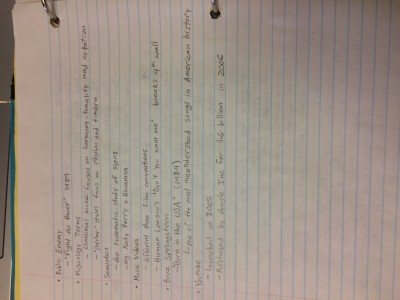 • Public Enemy
- "Fight the Power" 1989
• Musicology Terms
- classical music focuses on harmony, tonality and notation
- popular music focus on rhythm and timbre
• Semiotics
- the systematic study of signs
eg. Katy Perry + Rihanna
• Music Videos
- different than film conventions
- Human League's "Don't You Want Me" breaks 4th wall
• Bruce Springsteen
- "Born in the USA" (1984)
↳ one of the most misunderstood songs in American history
• Youtube
- launched in 2005
- Purchased by Google Inc. for 1.6 billion in 2006